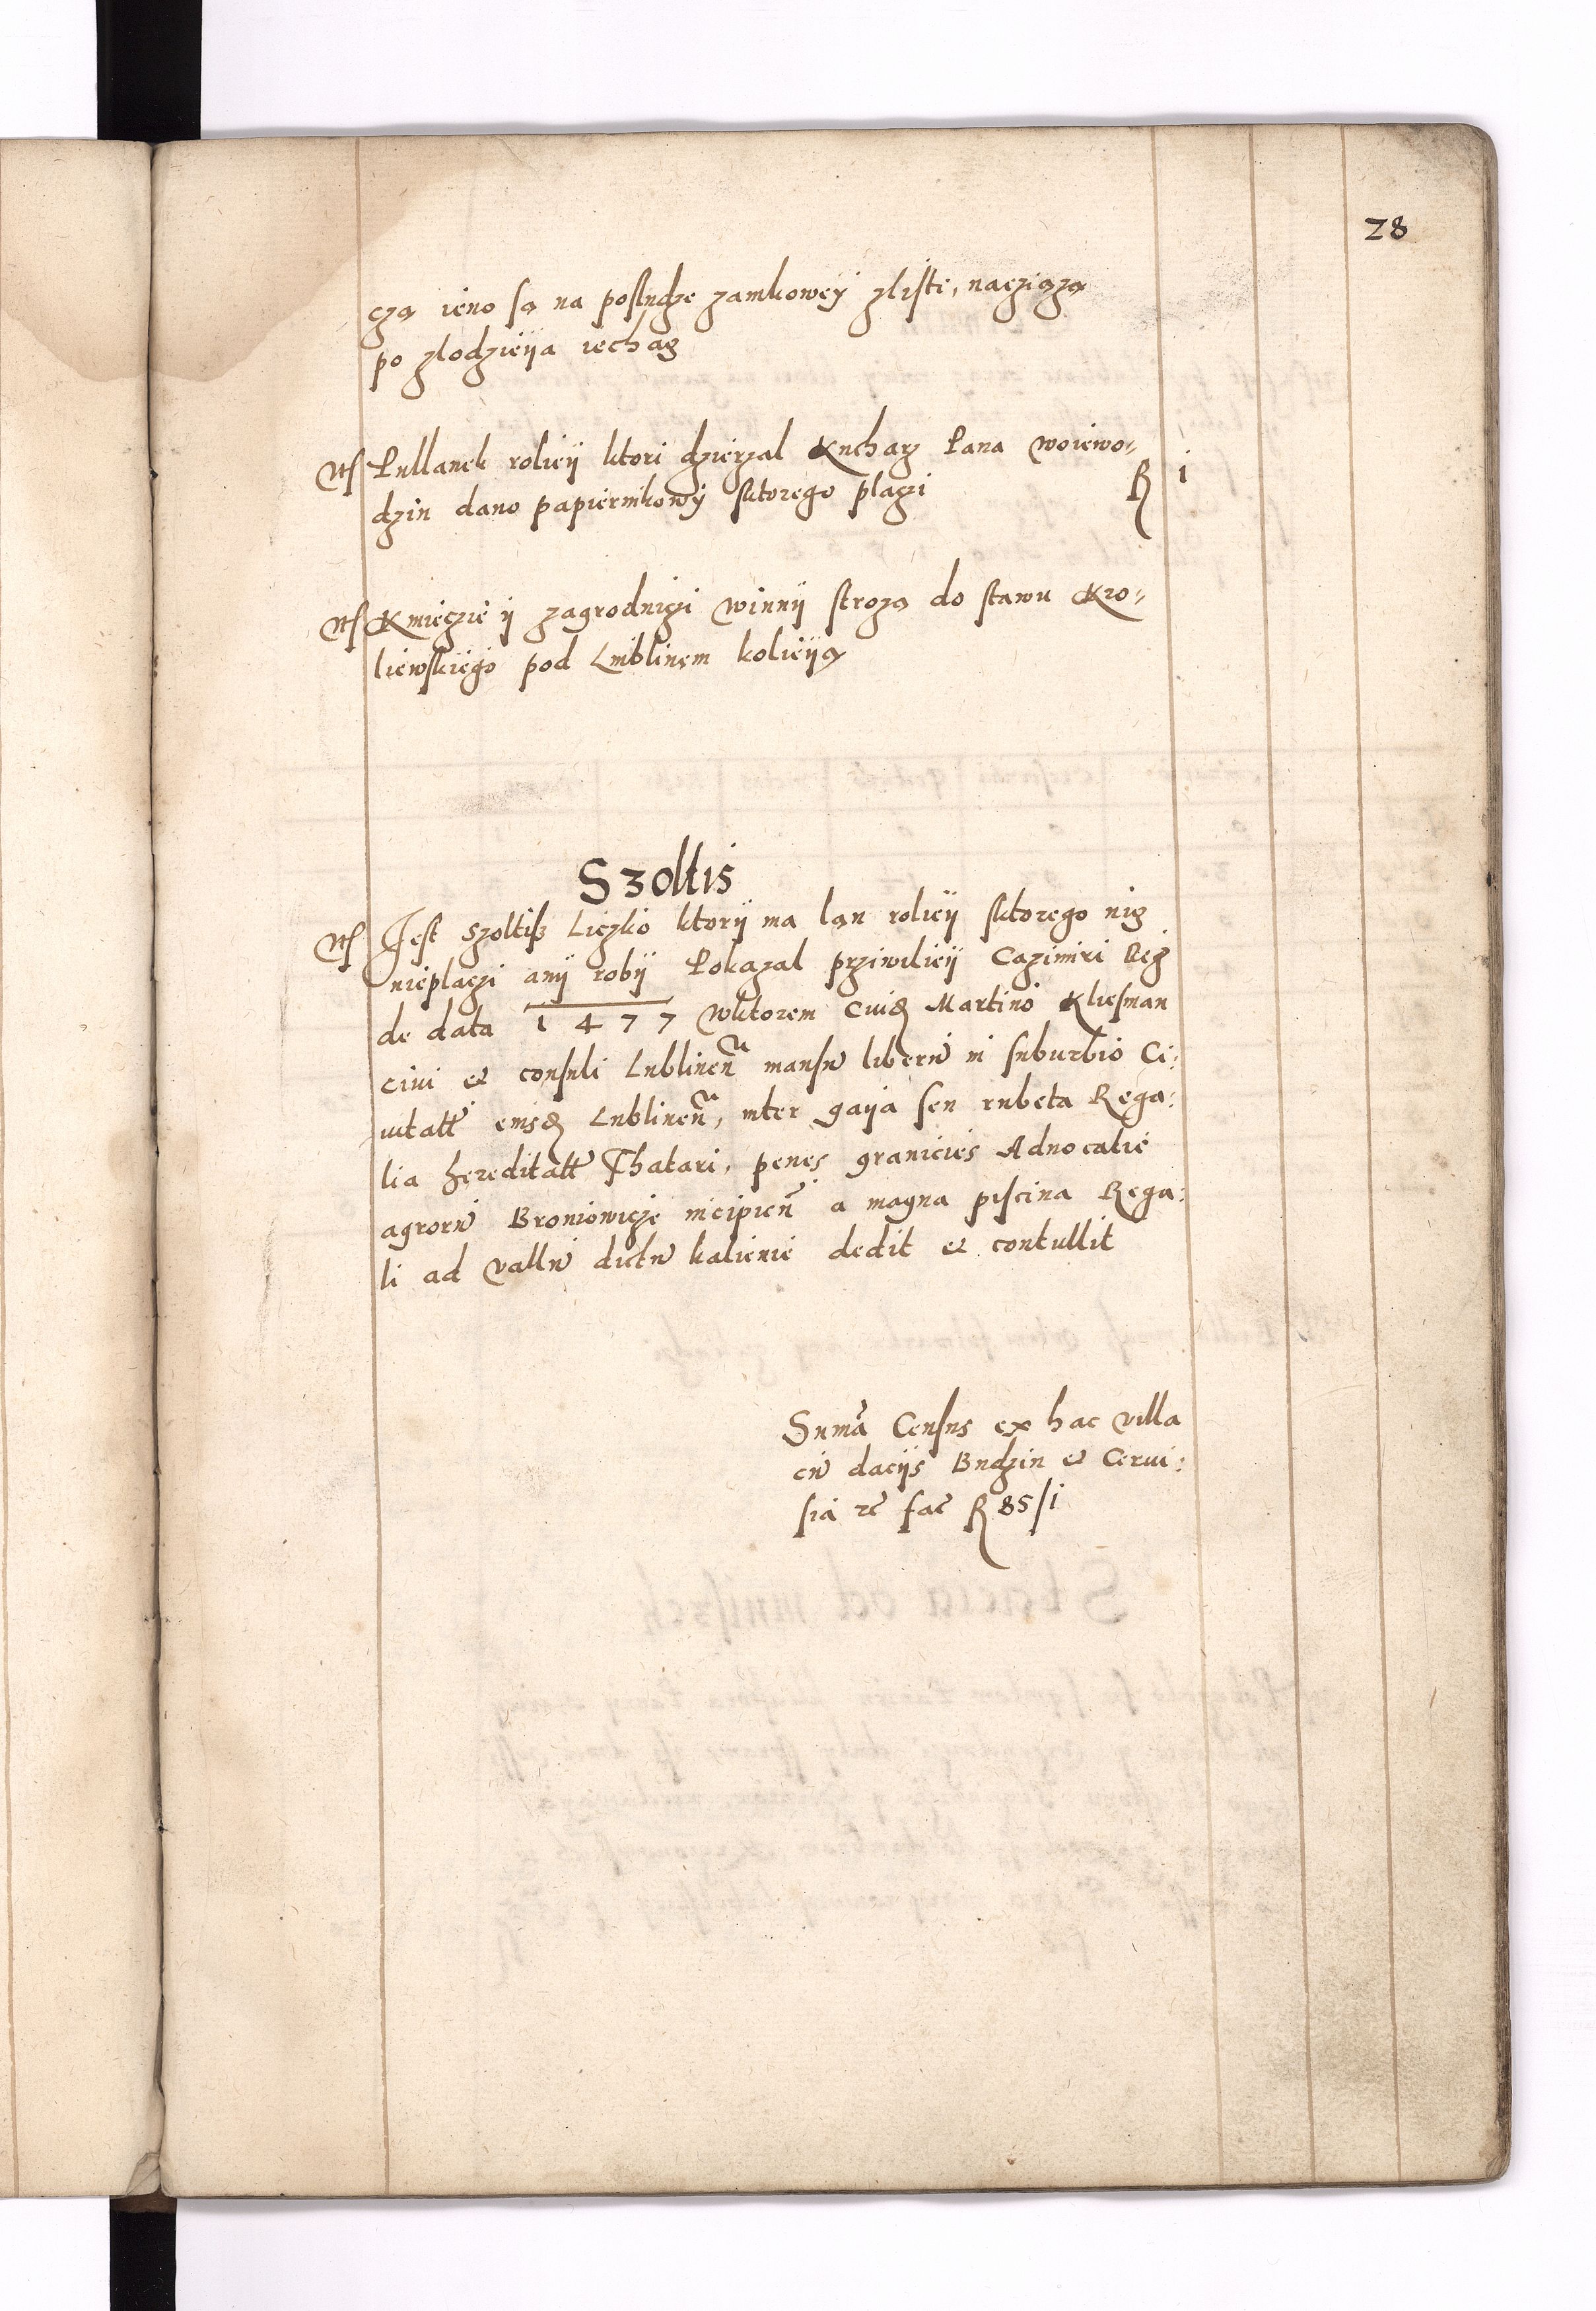 28
czą ieno są na posludze zamkoweÿ zlistÿ, naczięzą
po zlodzieÿa iechacz
Itẽ Pullanek rolieÿ ktori dzierzal Kucharz Pana woiewo-
dzin dano papiernikowÿ sktorego placzi R i
Itẽ Kmieczie ÿ zagrodniczi winnÿ strozą do stawu Kro-
liewskiego pod Lublinem kolieÿą
Szoltis
Itẽ Jest Szoltiss Liczko ktorÿ ma lan rolieÿ sktorego nicz
nieplaczi anÿ robÿ Pokazal prziwilieÿ Cazimiri Reg
de data 1477 wktorem cuidã Martino Kliesman
ciui et consuli Lublineñ mansũ liberũ in suburbio Ci:
uitatẽ eiusdẽ Lublineñ, inter gaÿa seu rubeta Rega:
lia hereditatẽ Thatari, penes granicies Aduocatie
agrorũ Bronowicze incipieñ a magna piscina Rega:
li ad vallũ dictũ kalienie dedit et contullit
Sumã Census ex hac villa
cũ dacÿs Budzin et Cerui:
sia rc̃ fac̃ R 85/1